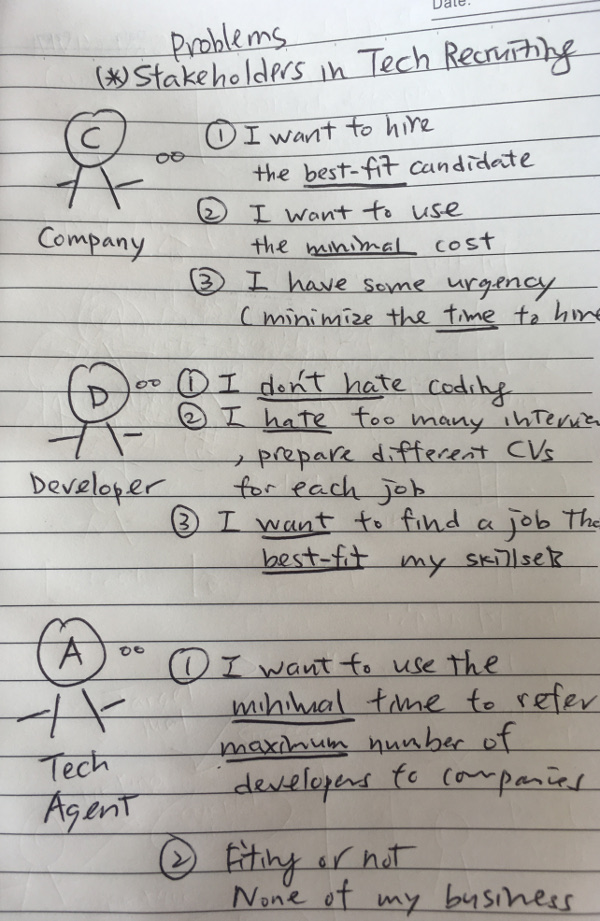 Date:
Problems
(*) Stakeholders in Tech Recruiting
C
① I want to hire
the best-fit candidate
Company
② I want to use
the minimal cost
③ I have some urgency
( minimize the time to hire
D
① I don't hate coding
② I hate too many
, prepare different CVs
Developer
for each job
③ I want to find a job
best-fit my skillsets
A
① I want to use the
minimal time to refer
maximum number of
Tech
developers to companies
Agent
② Fiting or not
None of my business